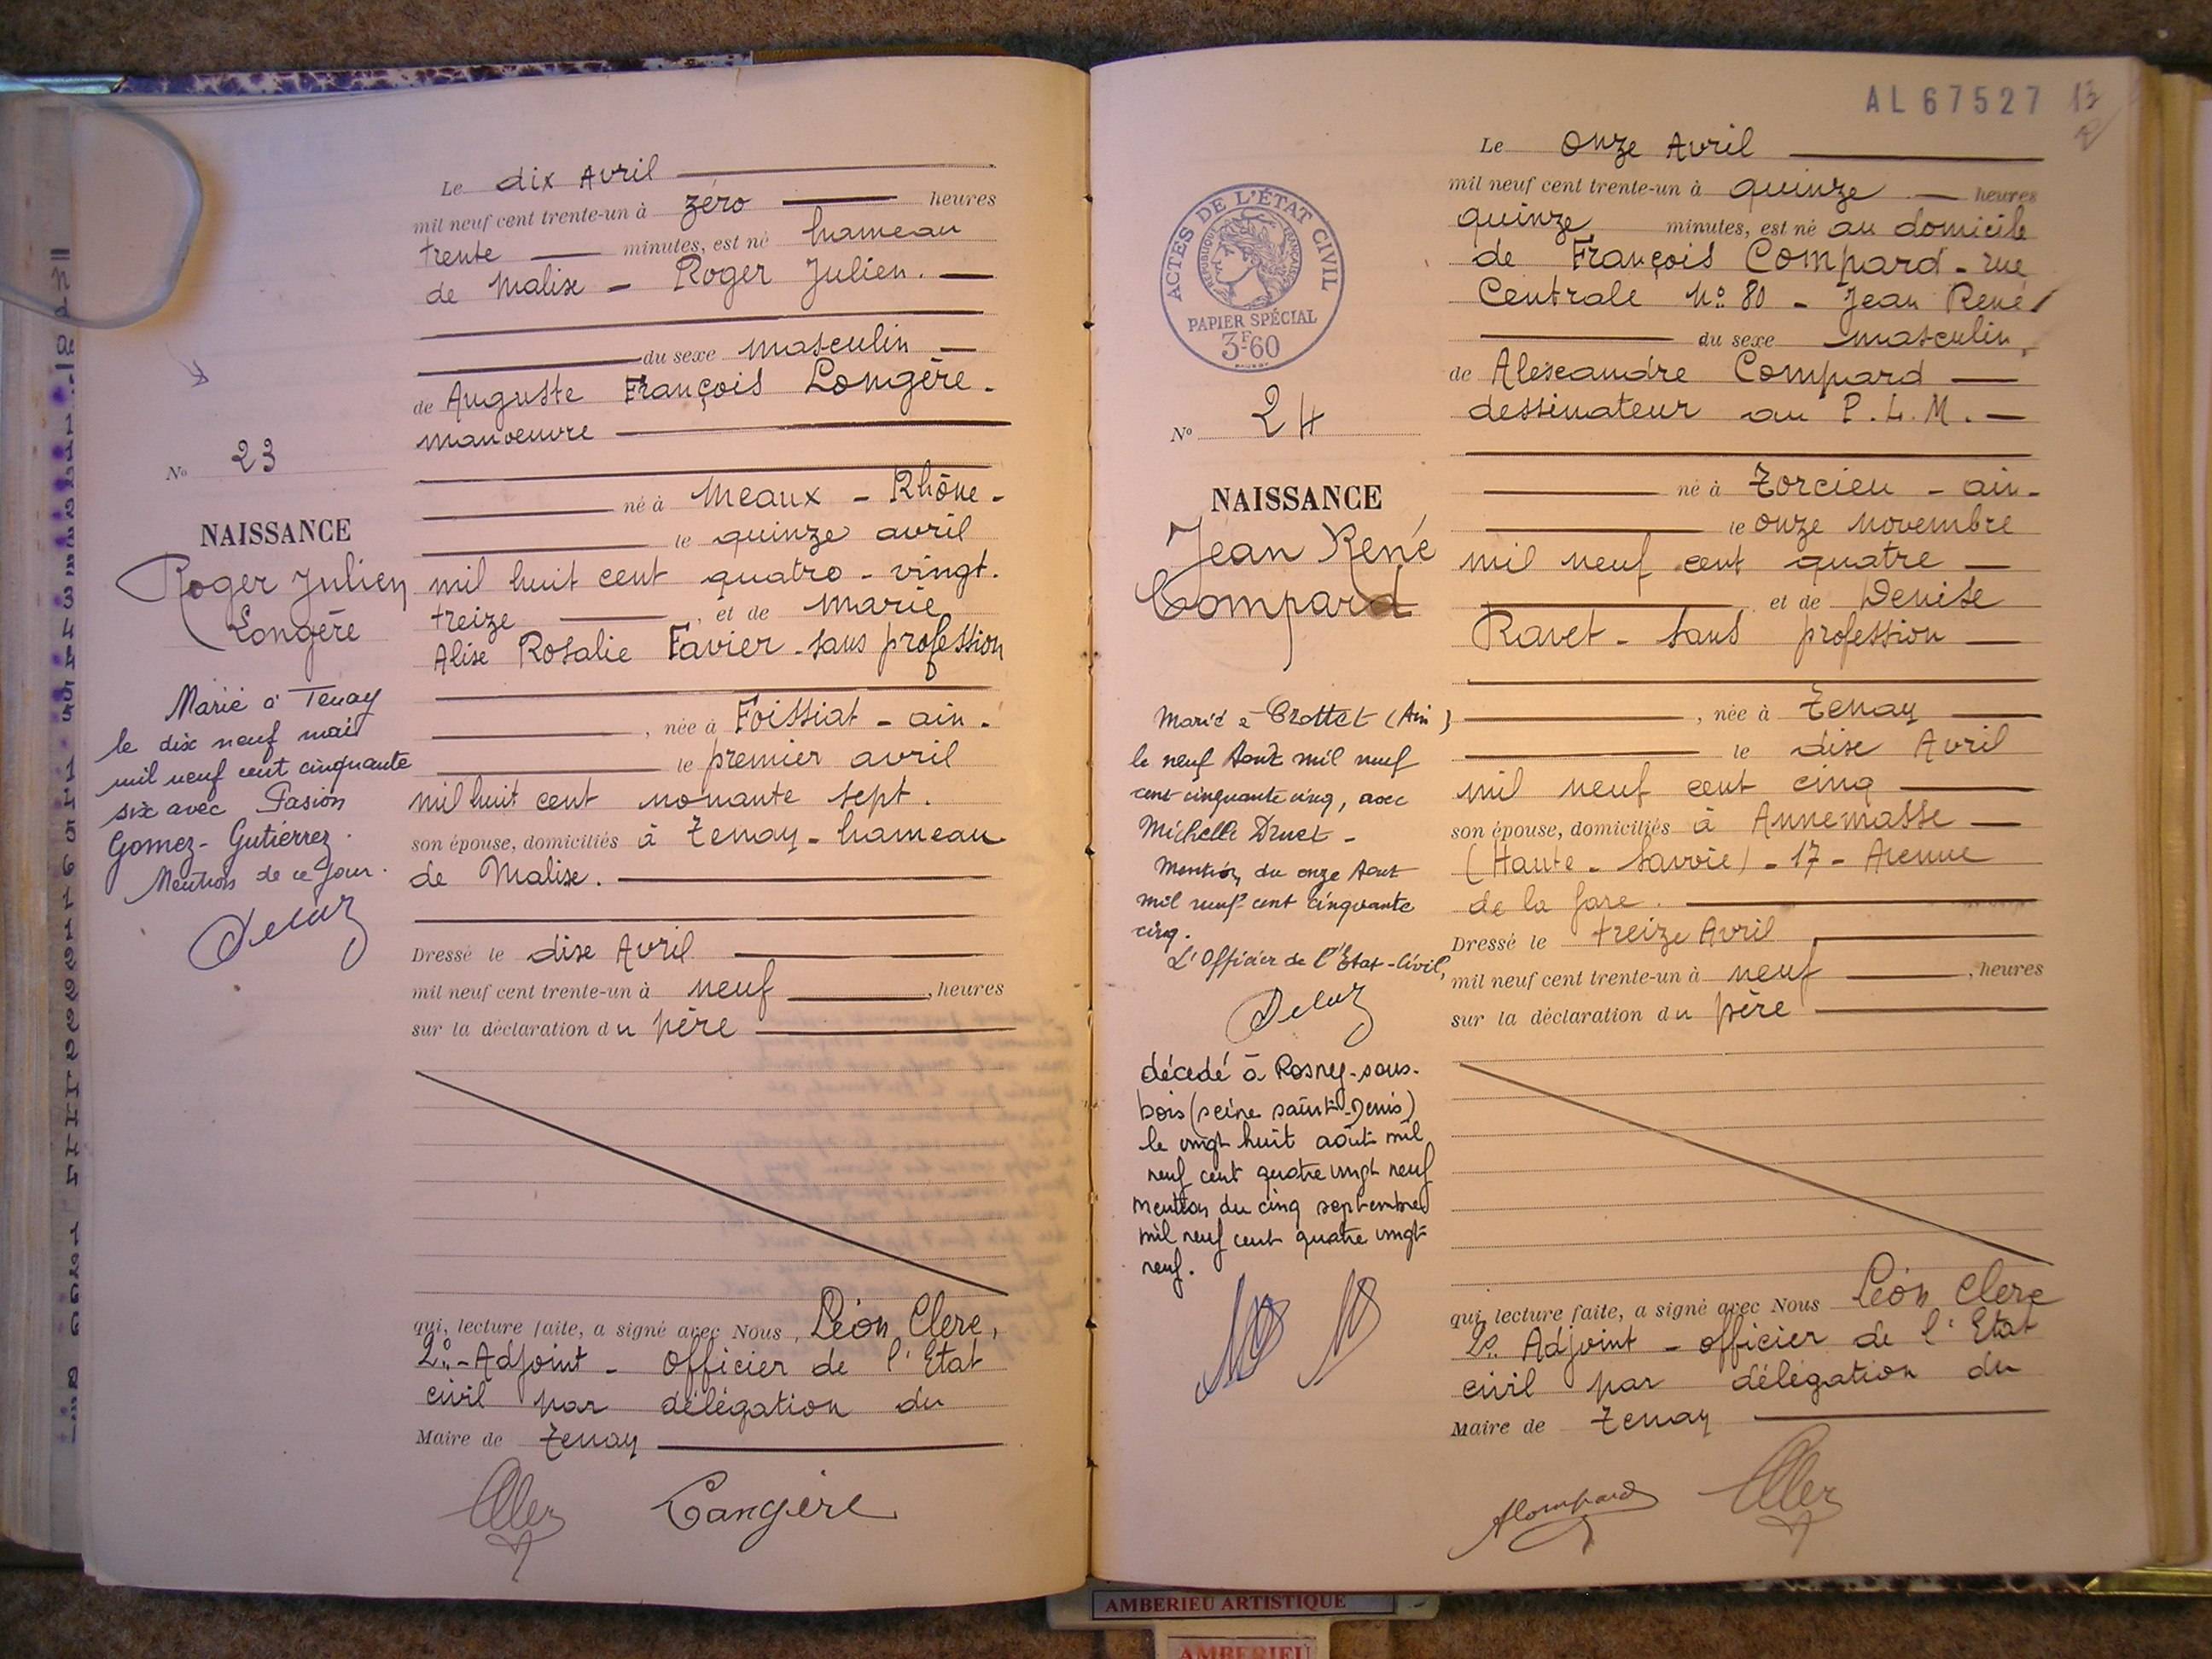 Le dix Avril
mil neuf cent trente-un à zéro heures
trente minutes, est né hameau
de Malix - Roger Julien.
du sexe masculin
de Auguste François Longère -
manoeuvre
né à Meaux - Rhône -
le quinze avril
mil huit cent quatre - vingt.
treize, et de Marie
Alise Rosalie Favier - sans profession
, née à Foissiat - ain.
le premier avril
mil huit cent nonante sept.
son épouse, domiciliés à Tenay - hameau
de Malix.
Dressé le dix Avril
mil neuf cent trente-un à neuf, heures
sur la déclaration du père
qui, lecture faite, a signé avec Nous, Léon Clerc,
2e - Adjoint - Officier de l'Etat
civil par délégation du
Maire de Tenay
Longère
No 23
NAISSANCE
Roger Julien
Longère
Marié à Tenay
le dix neuf mai
mil neuf cent cinquante
six avec Pasion
Gomez - Gutierrez.
Mention de ce jour.
AL 67527 13
ACTES DE L'ÉTAT CIVIL
RÉPUBLIQUE FRANÇAISE
PAPIER SPÉCIAL
3F60
No 24
NAISSANCE
Jean René
Compard
Marié à Crottet (Ain)
le neuf Aout mil neuf
cent cinquante cinq, avec
Michelle Druet -
Mention du onze Aout
mil neuf cent cinquante
cinq.
L'Officier de l'Etat-Civil,
décedé à Rosny-sous-
bois (seine saint-Denis)
le vingt huit août mil
neuf cent quatre vingt neuf
mention du cinq septembre
mil neuf cent quatre vingt
neuf.
Le onze Avril
mil neuf cent trente-un à quinze heures
quinze minutes, est né au domicile
de François Compard - rue
Centrale No 80 - Jean René
du sexe masculin,
de Alexandre Compard
dessinateur au P.L.M.
né à Torcieu - ain -
le onze novembre
mil neuf cent quatre
et de Denise
Ravet - sans profession
, née à Tenay
le dix Avril
mil neuf cent cinq
son épouse, domiciliés à Annemasse
(Haute - Savoie) - 17 - Avenue
de la gare.
Dressé le treize Avril
mil neuf cent trente-un à neuf, heures
sur la déclaration du père
qui, lecture faite, a signé avec Nous Léon Clerc
2e Adjoint - officier de l'Etat
civil par délégation du
Maire de Tenay
ACompard
AMBERIEU ARTISTIQUE
AMBERIEU